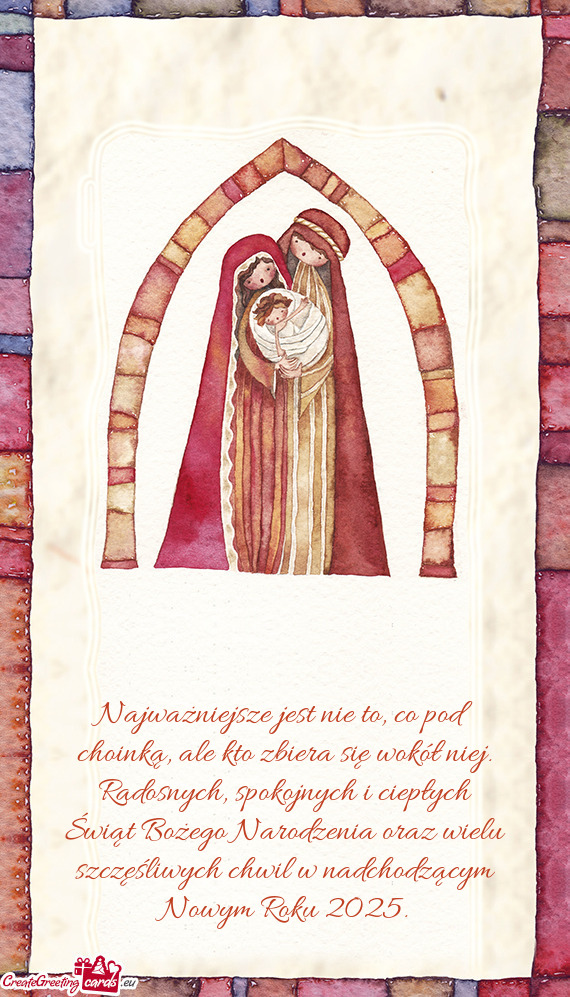 Najważniejsze jest nie to, co pod
choinką, ale kto zbiera się wokół niej.
Radosnych, spokojnych i ciepłych
Świąt Bożego Narodzenia oraz wielu
szczęśliwych chwil w nadchodzącym
Nowym Roku 2025.
CreateGreeting cards .eu